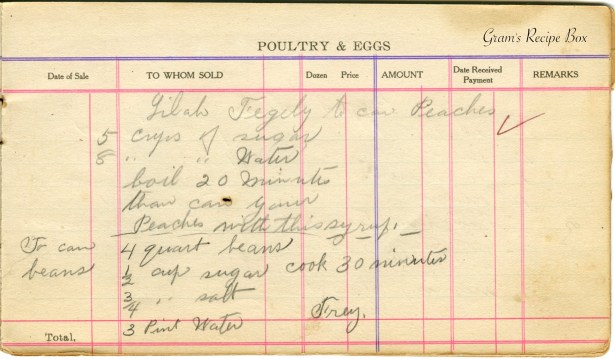 Gram's Recipe Box
POULTRY & EGGS
Date of Sale TO WHOM SOLD Dozen Price AMOUNT Date Received Payment REMARKS
Lilah Fegely to can Peaches
5 cups of sugar
8 " " Water
boil 20 Minutes
than can your
Peaches with this syrup.
To can beans
4 quart beans
1/2 cup sugar cook 30 minutes
3/4 " salt
3 Pint Water Frey.
Total,